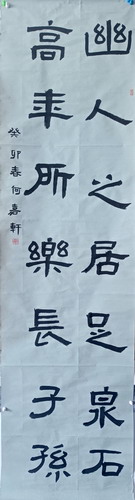 幽人之居足泉石
高年所樂長子孫
癸卯春何嘉軒